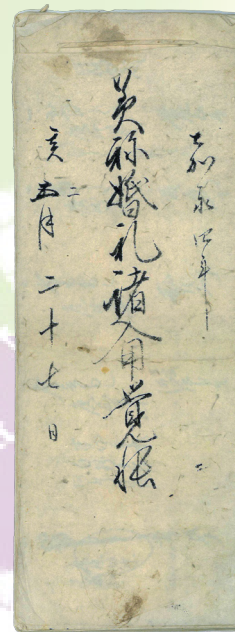 嘉永四年
美祢婚礼諸入用覚帳
亥二月二十七日